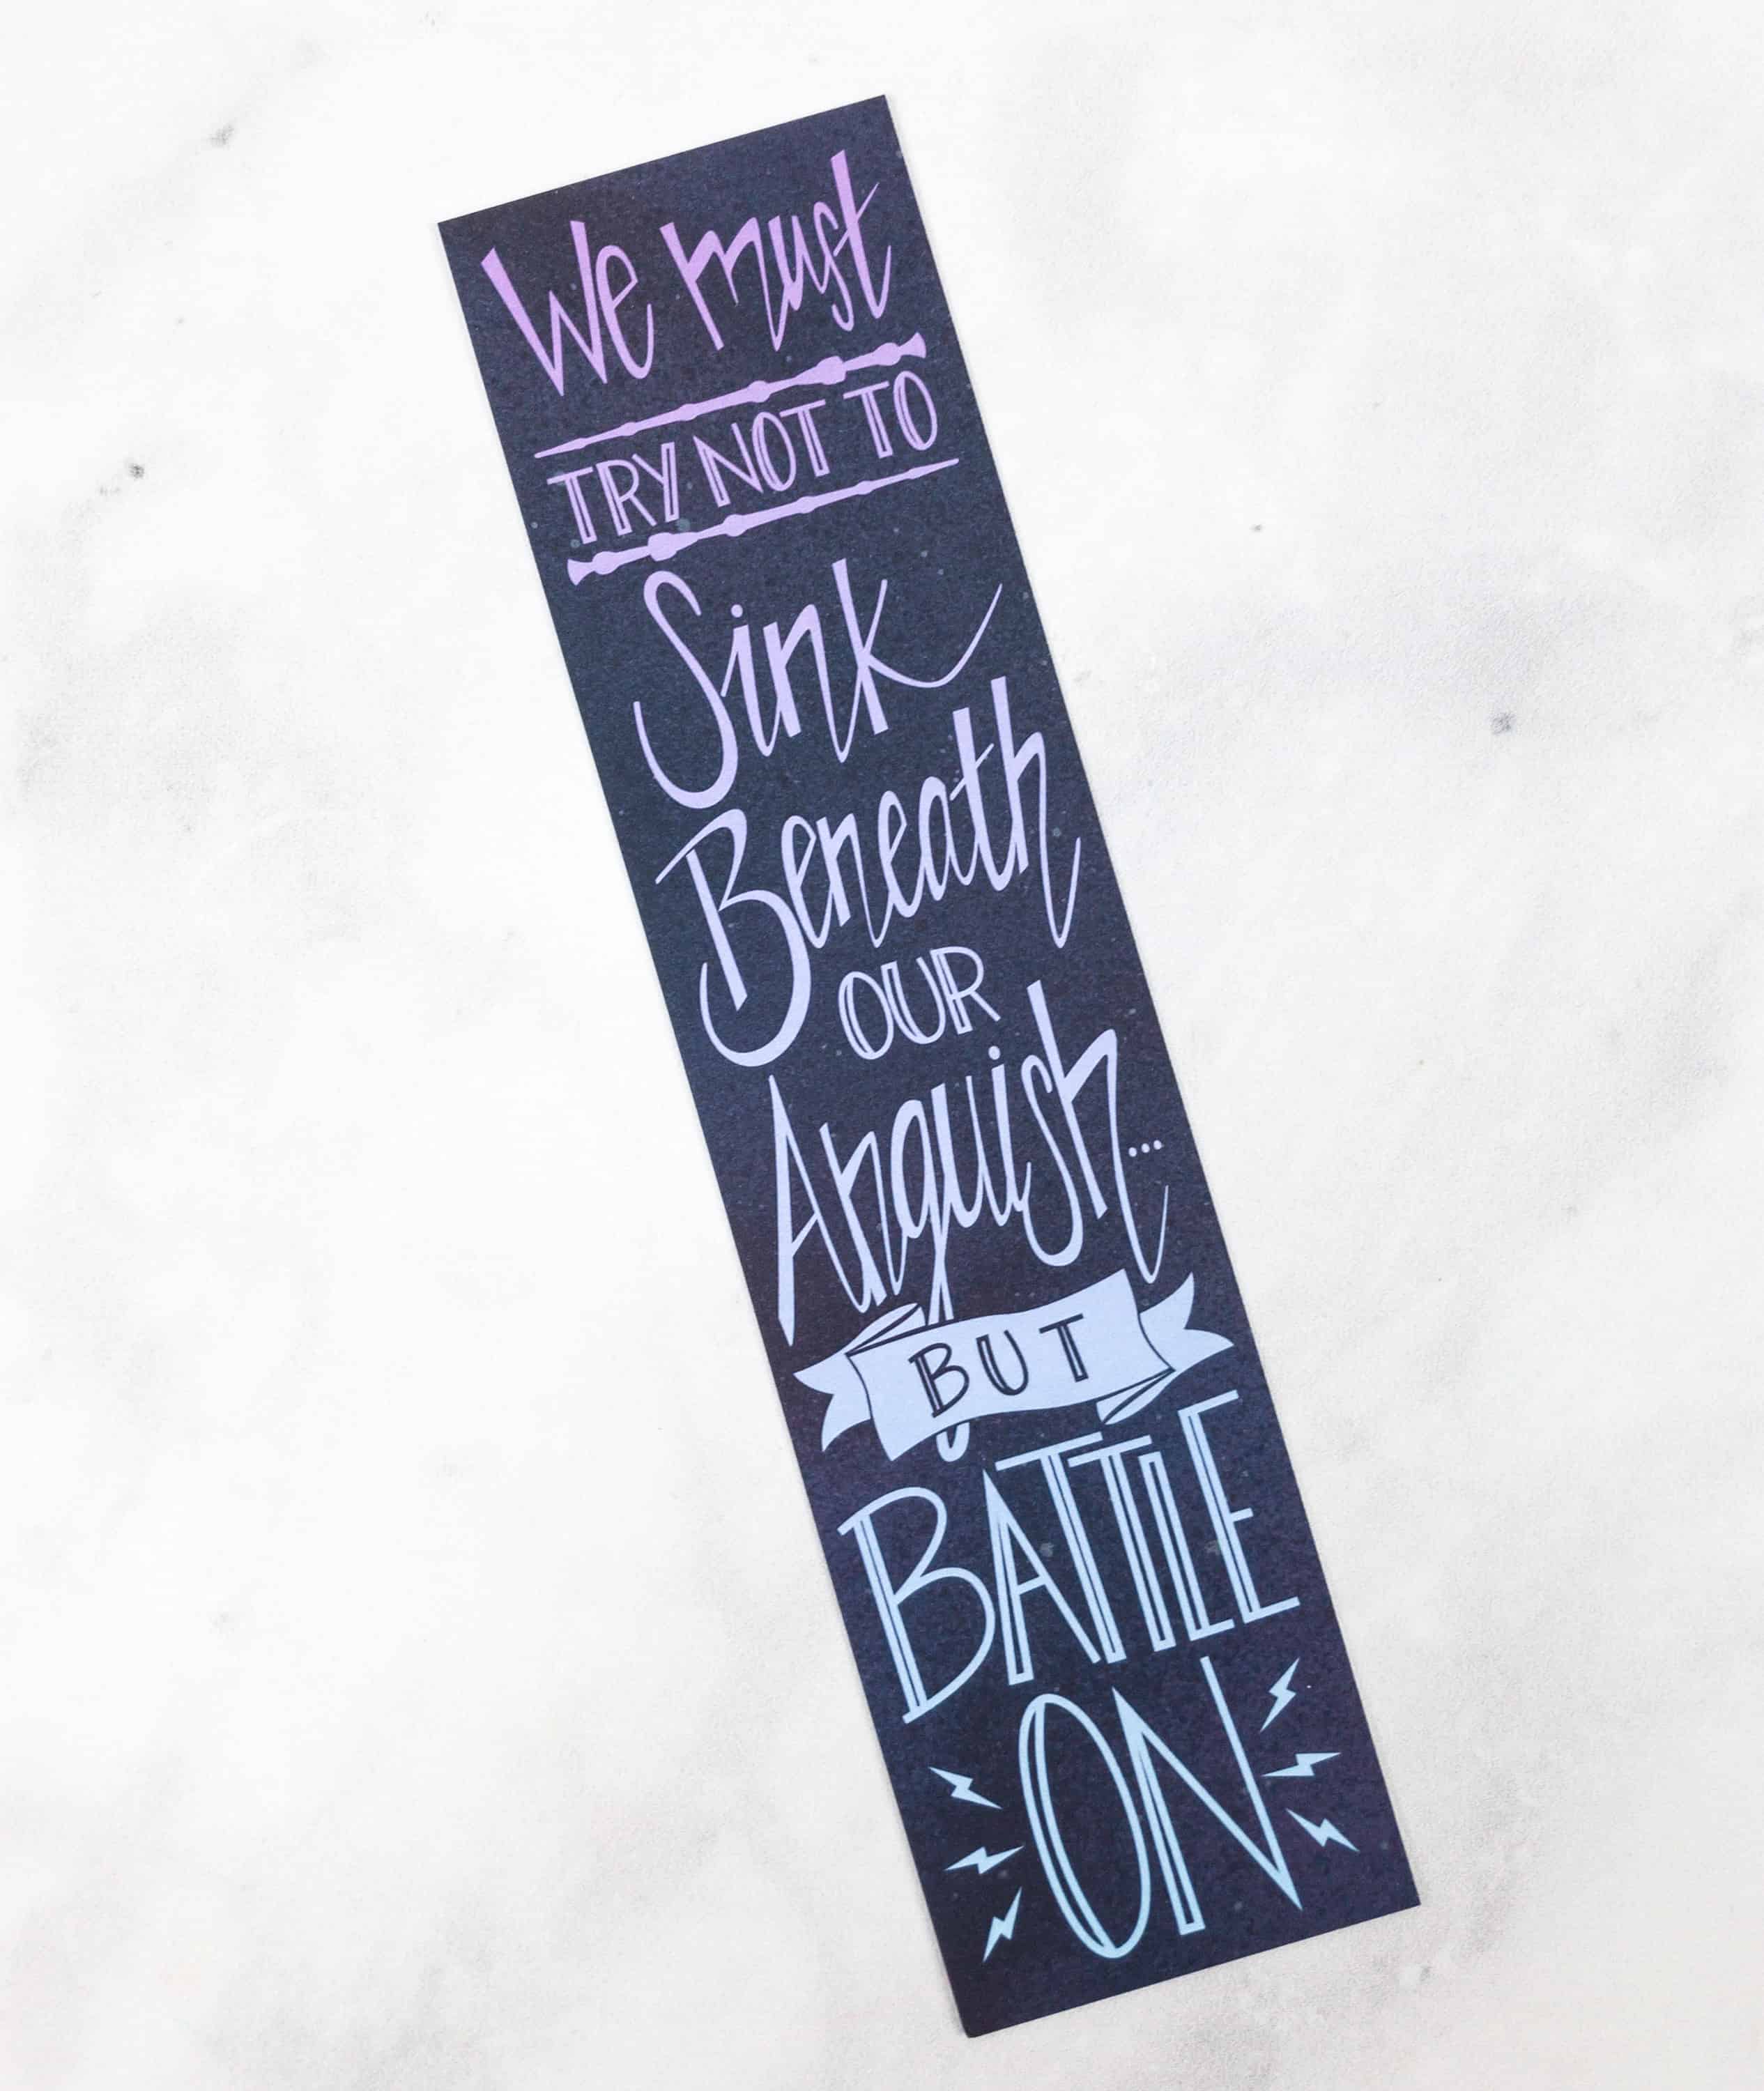 We must
TRY NOT TO
Sink
Beneath
OUR
Anguish...
BUT
BATTLE
ON